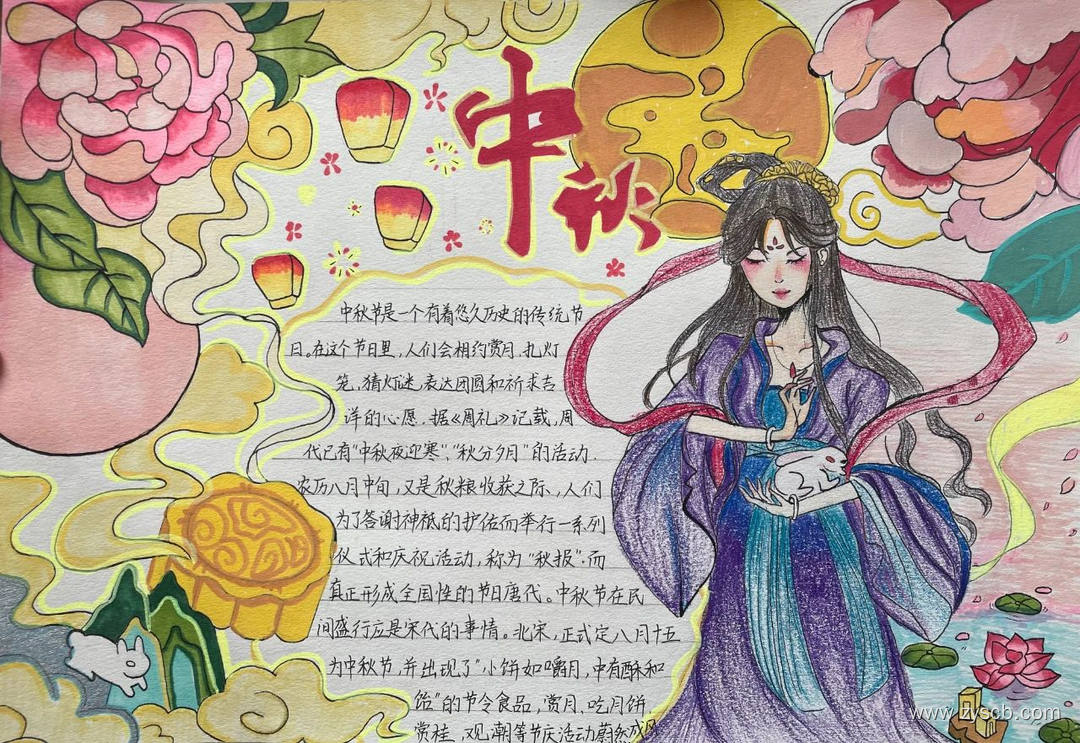 中秋
中秋节是一个有着悠久历史的传统节
日。在这个节日里,人们会相约赏月,扎灯
笼,猜灯谜,表达团圆和祈求吉
洋的心愿。据《周礼》记载,周
代已有“中秋夜迎寒”、“秋分夕月”的活动.
农历八月中旬,又是秋粮收获之际,人们
为了答谢神祗的护佑而举行一系列
仪式和庆祝活动,称为“秋报”.而
真正形成全国性的节日唐代。中秋节在民
间盛行应是宋代的事情。北宋,正式定八月十五
为中秋节,并出现了“小饼如嚼月,中有酥和
饴”的节令食品,赏月、吃月饼、
赏桂,观潮等节庆活动蔚然成风
www.zyscb.com